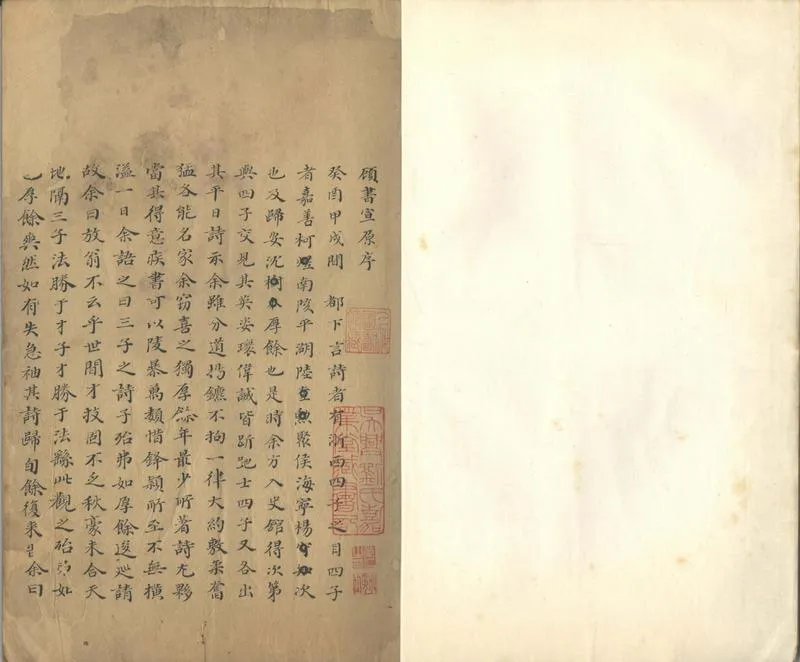 顧書宣原序
癸酉甲戌間都下言詩者有浙西四子之目四子
者嘉善柯煜南陵平湖陸奎勲聚侯海寧楊守知次
也及歸安沈樹本厚餘也是時余方入史館得次第
與四子交見其英姿瓌偉誠皆跅跎士四子又各出
其平日詩示余雖分道揚鑣不拘一律大約敷柔奮
猛各能名家余窃喜之獨厚餘年最少所著詩尤夥
當其得意疾書可以陵暴萬類惜鋒穎所至不無橫
溢一日余語之曰三子之詩子殆弗如厚餘逡巡請
故余曰放翁不云乎世間才技固不乏秋豪未合天
地隔三子法勝于才子才勝于法繇此觀之殆弗如
厚餘爽然如有失急袖其詩歸旬餘復来余曰